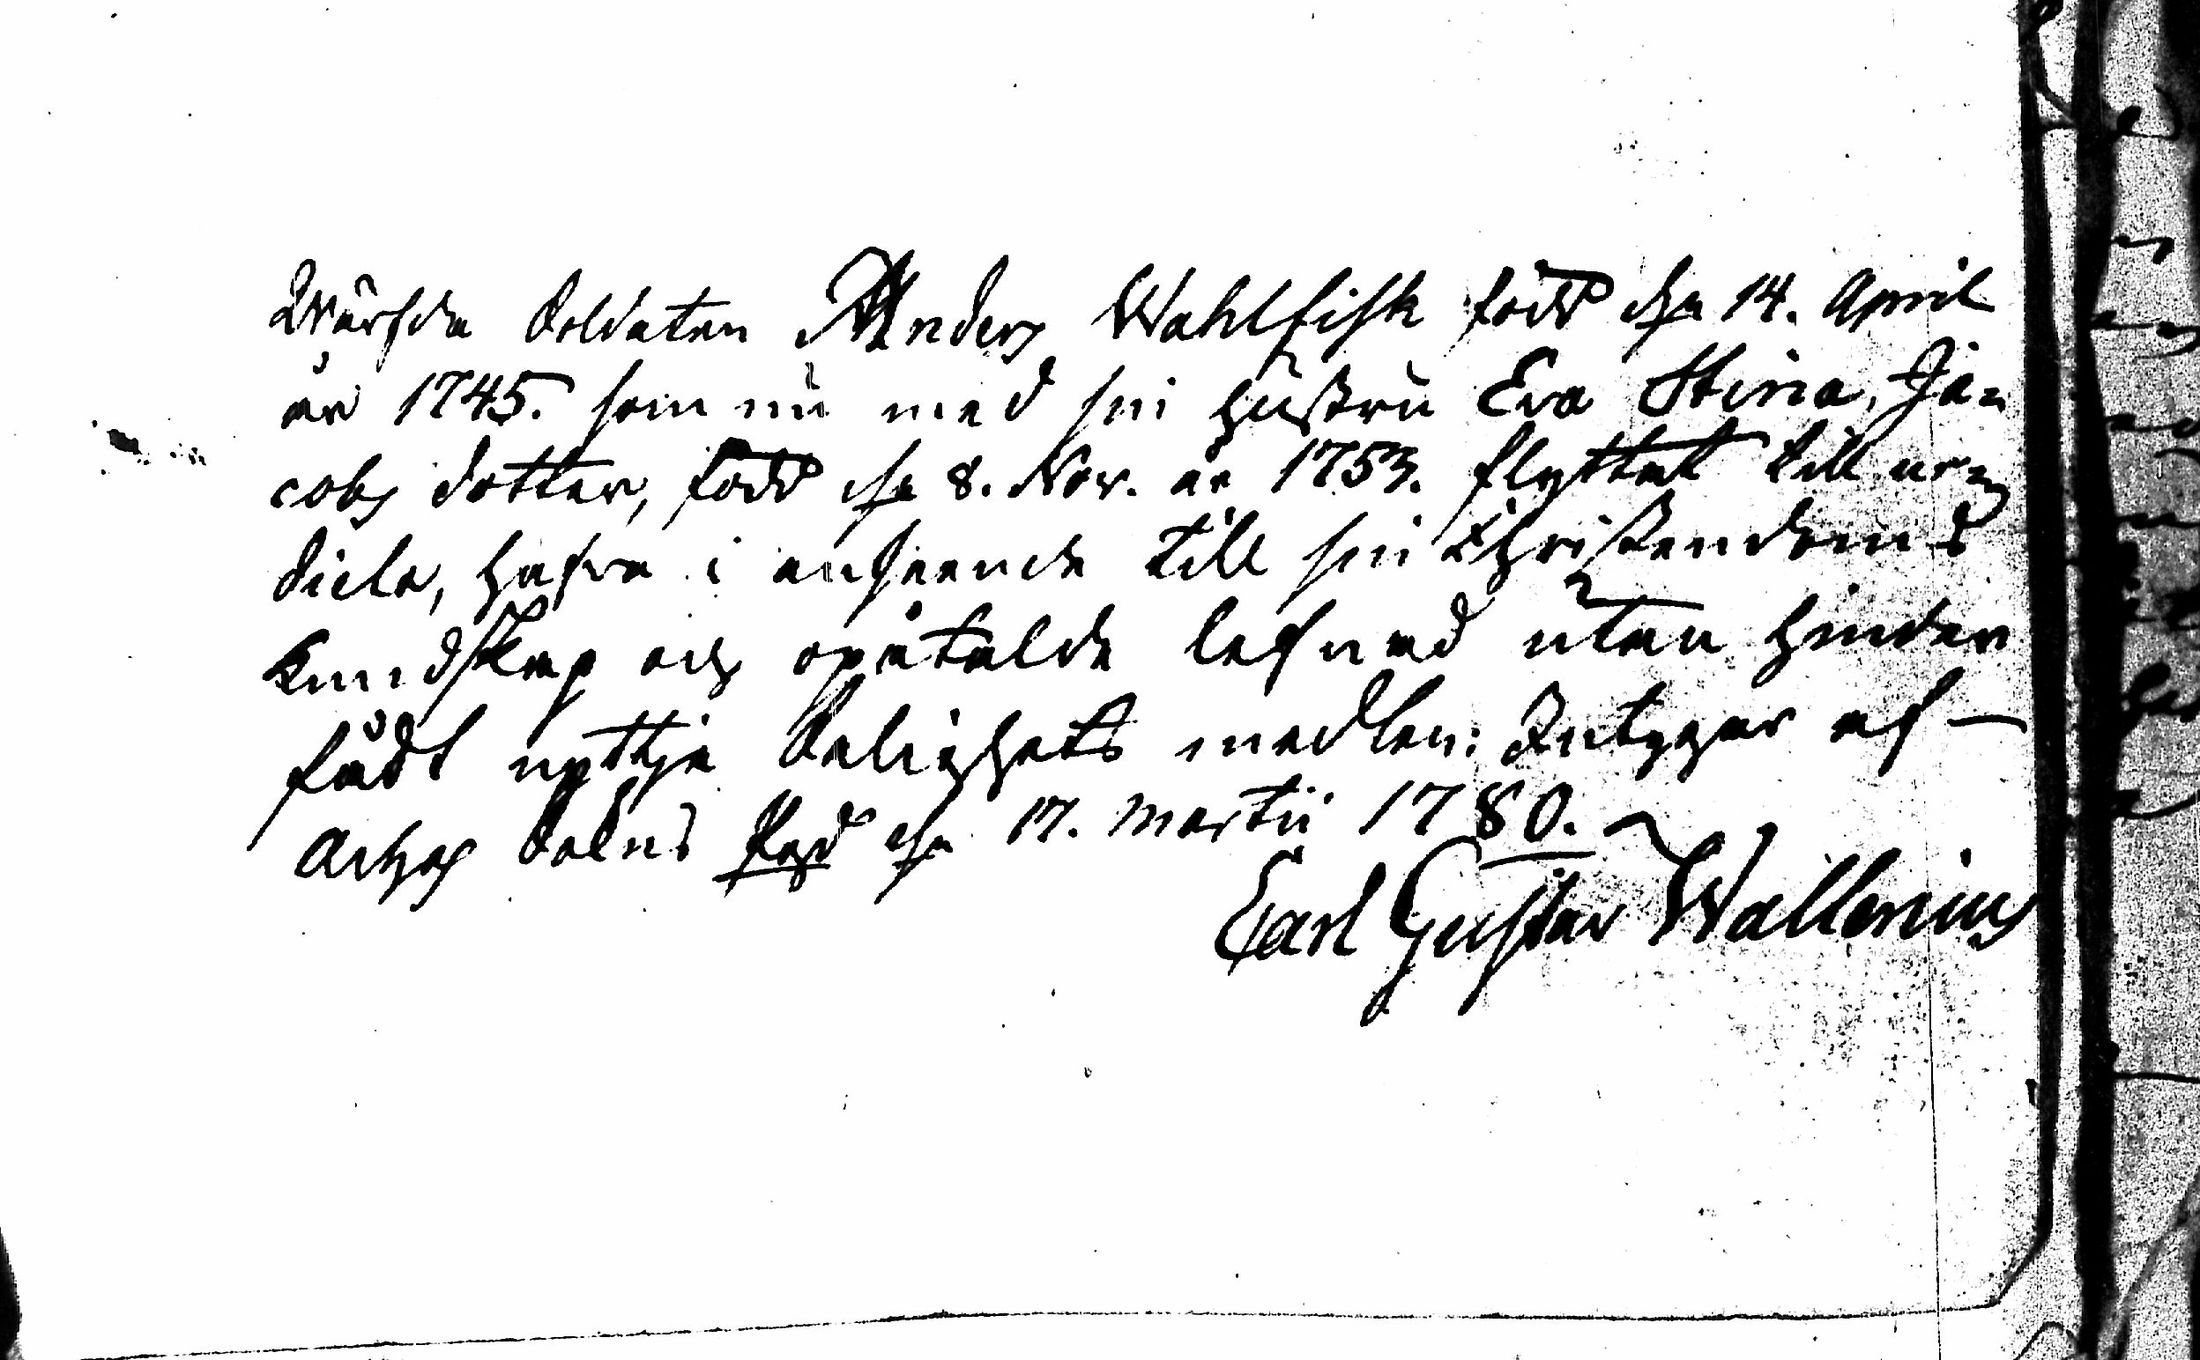 Wärfde Soldaten Anders Wahlfisk född d. 14. April
år 1745. som nu med sin hustru Eva Stina, Ja=
cobs dotter, född d. 8. Nov. år 1753. flyttat till
hafva i anseende till sin Christendoms
Kundskap och opåtalde lefnad utan hinder
fådt nyttja Salighets medlen: Intygar af
d. 17. Martii 1780.
Carl Gustav Wallerius